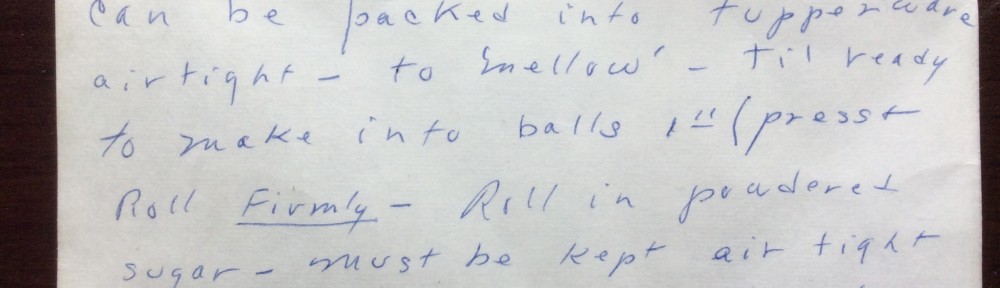 can be packed into tupperware
airtight - to 'mellow' - til ready
to make into balls 1" (press +
Roll Firmly - Roll in powdered
sugar - must be kept air tight